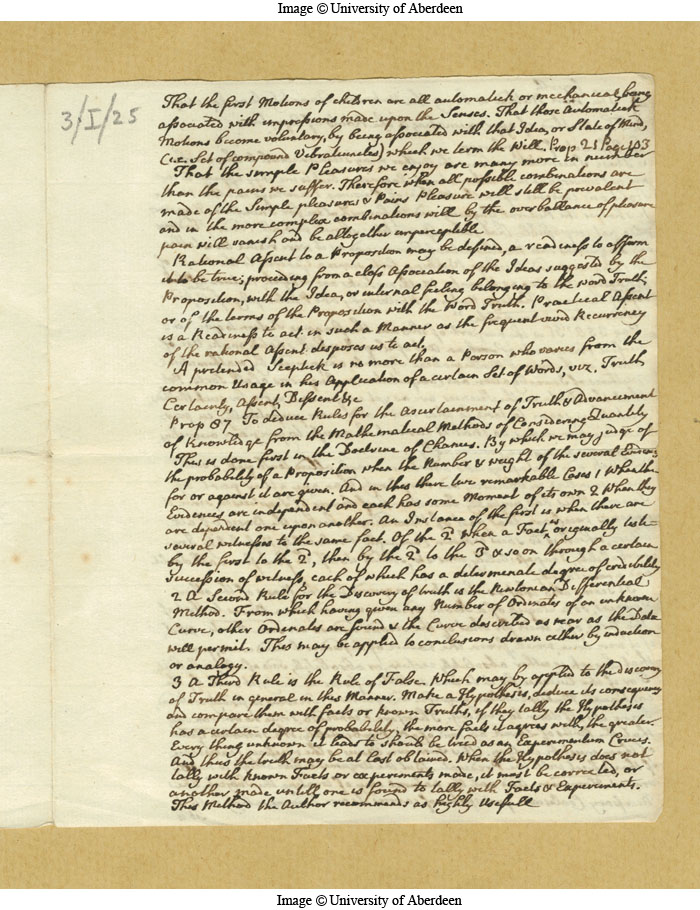 Image © University of Aberdeen
3/I/25
That the first Motions of children are all automatick or mechanical being
associated with impressions made upon the Senses. That those Automatick
Motions become voluntary, by being associated with that Idea, or State of Mind,
(i.e. Set of compound Vibratiuncles) which we term the Will. Prop 21 Page 103
That the simple Pleasures we enjoy are many more in number
than the pains we suffer. Therefore when all possible combinations are
made of the Simple pleasures & Pains Pleasure will still be prevalent
and in the more complex combinations will by the overballance of pleasure
pain will vanish and be alltogether imperceptible
Rational Assent to a Proposition may be defined, a readiness to affirm
it to be true; proceeding from a close Association of the Ideas suggested by the
Proposition, with the Idea, or internal feeling belonging to the word Truth;
or of the terms of the Proposition with the Word Truth. Practical Assent
is a Readiness to act in such a Manner as the frequent vivid Recurrency
of the rational Assent disposes us to act,
A pretended Sceptick is no more than a Person who varies from the
common Usage in his Application of a certain Set of Words, viz. Truth
Certainty, Assent, Dissent &c
Prop 87 To deduce Rules for the ascertainment of Truth & Advancement
of Knowledge from the Mathematical Methods of Considering Quantity
This is done first in the Doctrine of Chances. By which we may judge of
the probability of a Proposition when the Number & weight of the several Eviden:
for or against it are given. And in this there two remarkable Cases 1 When the
Evidences are independent and each has some Moment of its own 2 When they
are dependent one upon another. An Instance of the first is when there are
several witnesses to the same fact. Of the 2d when a Fact is originally
by the first to the 2d, then by the 2d to the 3d & so on through a certain
succession of witness, each of which has a determinate degree of credibility
2 A Second Rule for the Discovery of truth is the Newtonian Differential
Method. From which having given any Number of Ordinates of an unknown
Curve, other Ordinates are found & the Curve described as near as the Data
will permit. This may be applied to conclusions drawn either by induction
or analogy.
3 A Third Rule is the Rule of False. Which may by applied to the discovery
of Truth in general in this Manner. Make a Hypothesis, deduce its consequences
and compare them with facts or known Truths, if they tally the Hypothesis
has a certain degree of probability, the more facts it agrees with, the greater.
Every thing unknown it leads to should be tried as an Experimentum Crucis.
And thus the truth may be at last obtained. When the Hypothesis does not
tally with known Facts or experiments made, it must be corrected, or
another made untill one is found to tally with Facts & Experiments.
This Method the Author recommends as highly usefull
Image © University of Aberdeen